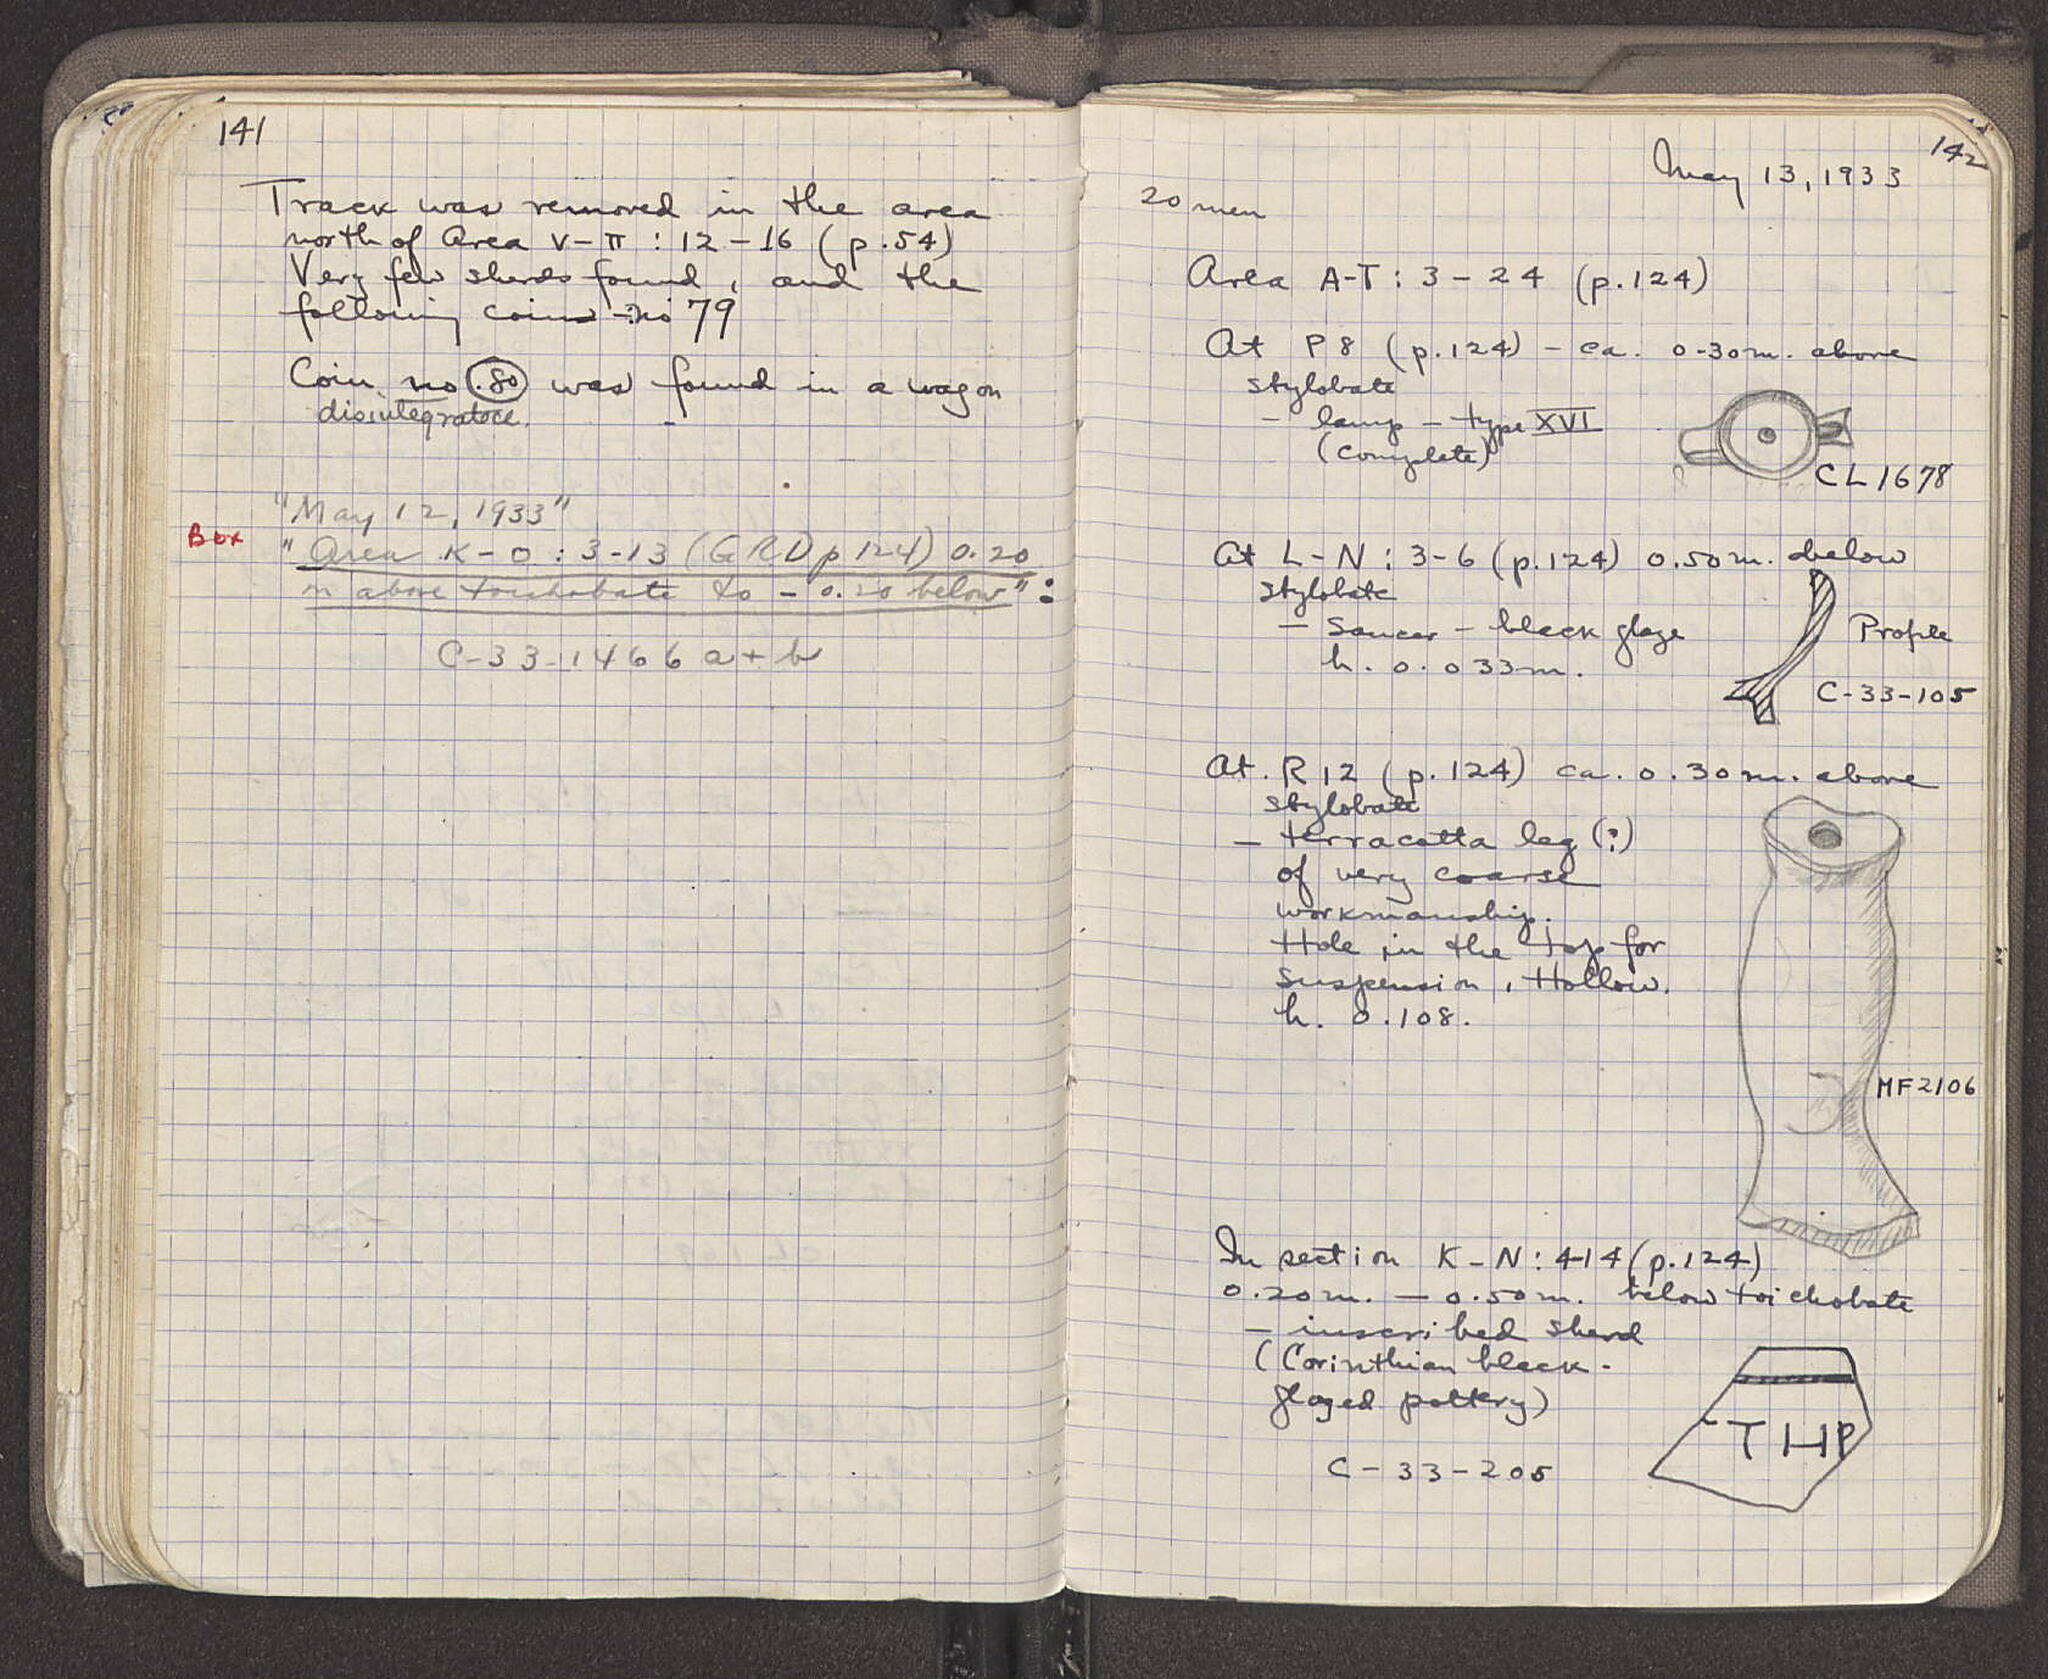 141
Track was removed in the area
north of Area V-π : 12-16 (p.54)
Very few sherds found, and the
following coins no 79
Coin no .80 was found in a wagon
disintegrated.
"May 12, 1933"
Box
"Area K-O : 3-13 (GRD p 124) 0.20
m above toichobate to - 0.20 below":
C-33-1466 a+b
142
May 13, 1933
20 men
Area A-T : 3-24 (p.124)
At P8 (p.124) - ca. 0.30m. above
stylobate
- lamp - type XVI
(complete)
CL 1678
At L-N : 3-6 (p.124) 0.50m. below
stylobate
- saucer - black glaze
h. 0.033m.
Profile
C-33-105
At R12 (p.124) ca. 0.30m. above
stylobate
- terracotta leg (?)
of very coarse
workmanship.
Hole in the top for
suspension, Hollow.
h. 0.108.
MF2106
In section K-N : 4-14 (p.124)
0.20m. - 0.50m. below toichobate
- inscribed sherd
(Corinthian black-
glazed pottery)
THP
C-33-205